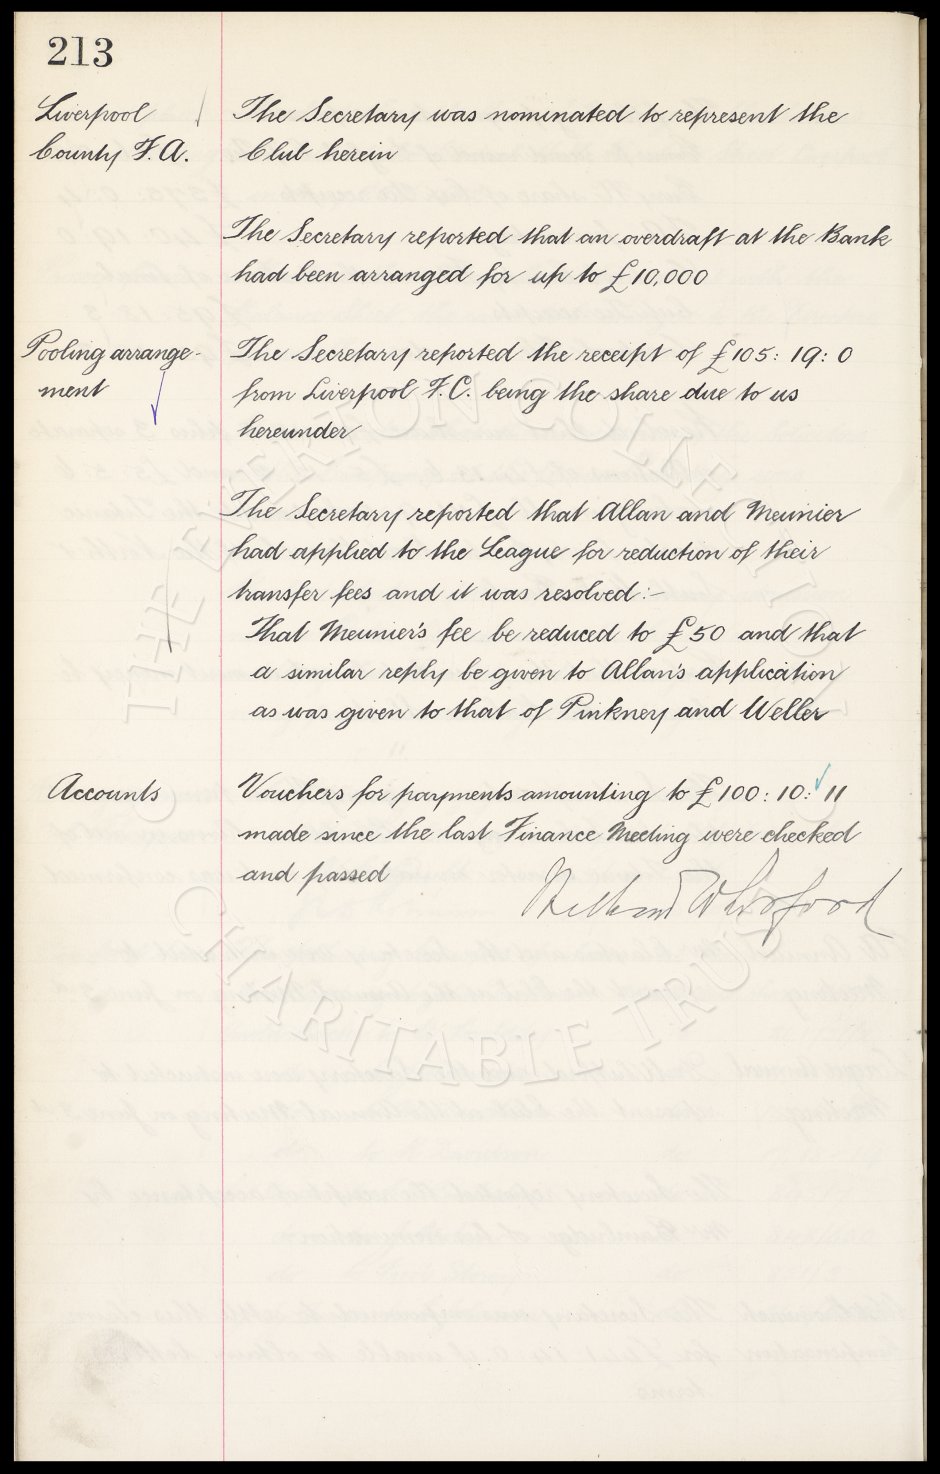 213
Liverpool
County F.A.
The Secretary was nominated to represent the
Club herein
The Secretary reported that an overdraft at the Bank
had been arranged for up to £10,000
Pooling arrange-
ment
The Secretary reported the receipt of £105:19:0
from Liverpool F.C. being the share due to us
hereunder
The Secretary reported that Allan and Meunier
had applied to the League for reduction of their
transfer fees and it was resolved:-
That Meunier's fee be reduced to £50 and that
a similar reply be given to Allan's application
as was given to that of Pinkney and Weller
Accounts
Vouchers for payments amounting to £100:10:11
made since the last Finance Meeting were checked
and passed
THE EVERTON COLLECTION
CHARITABLE TRUST